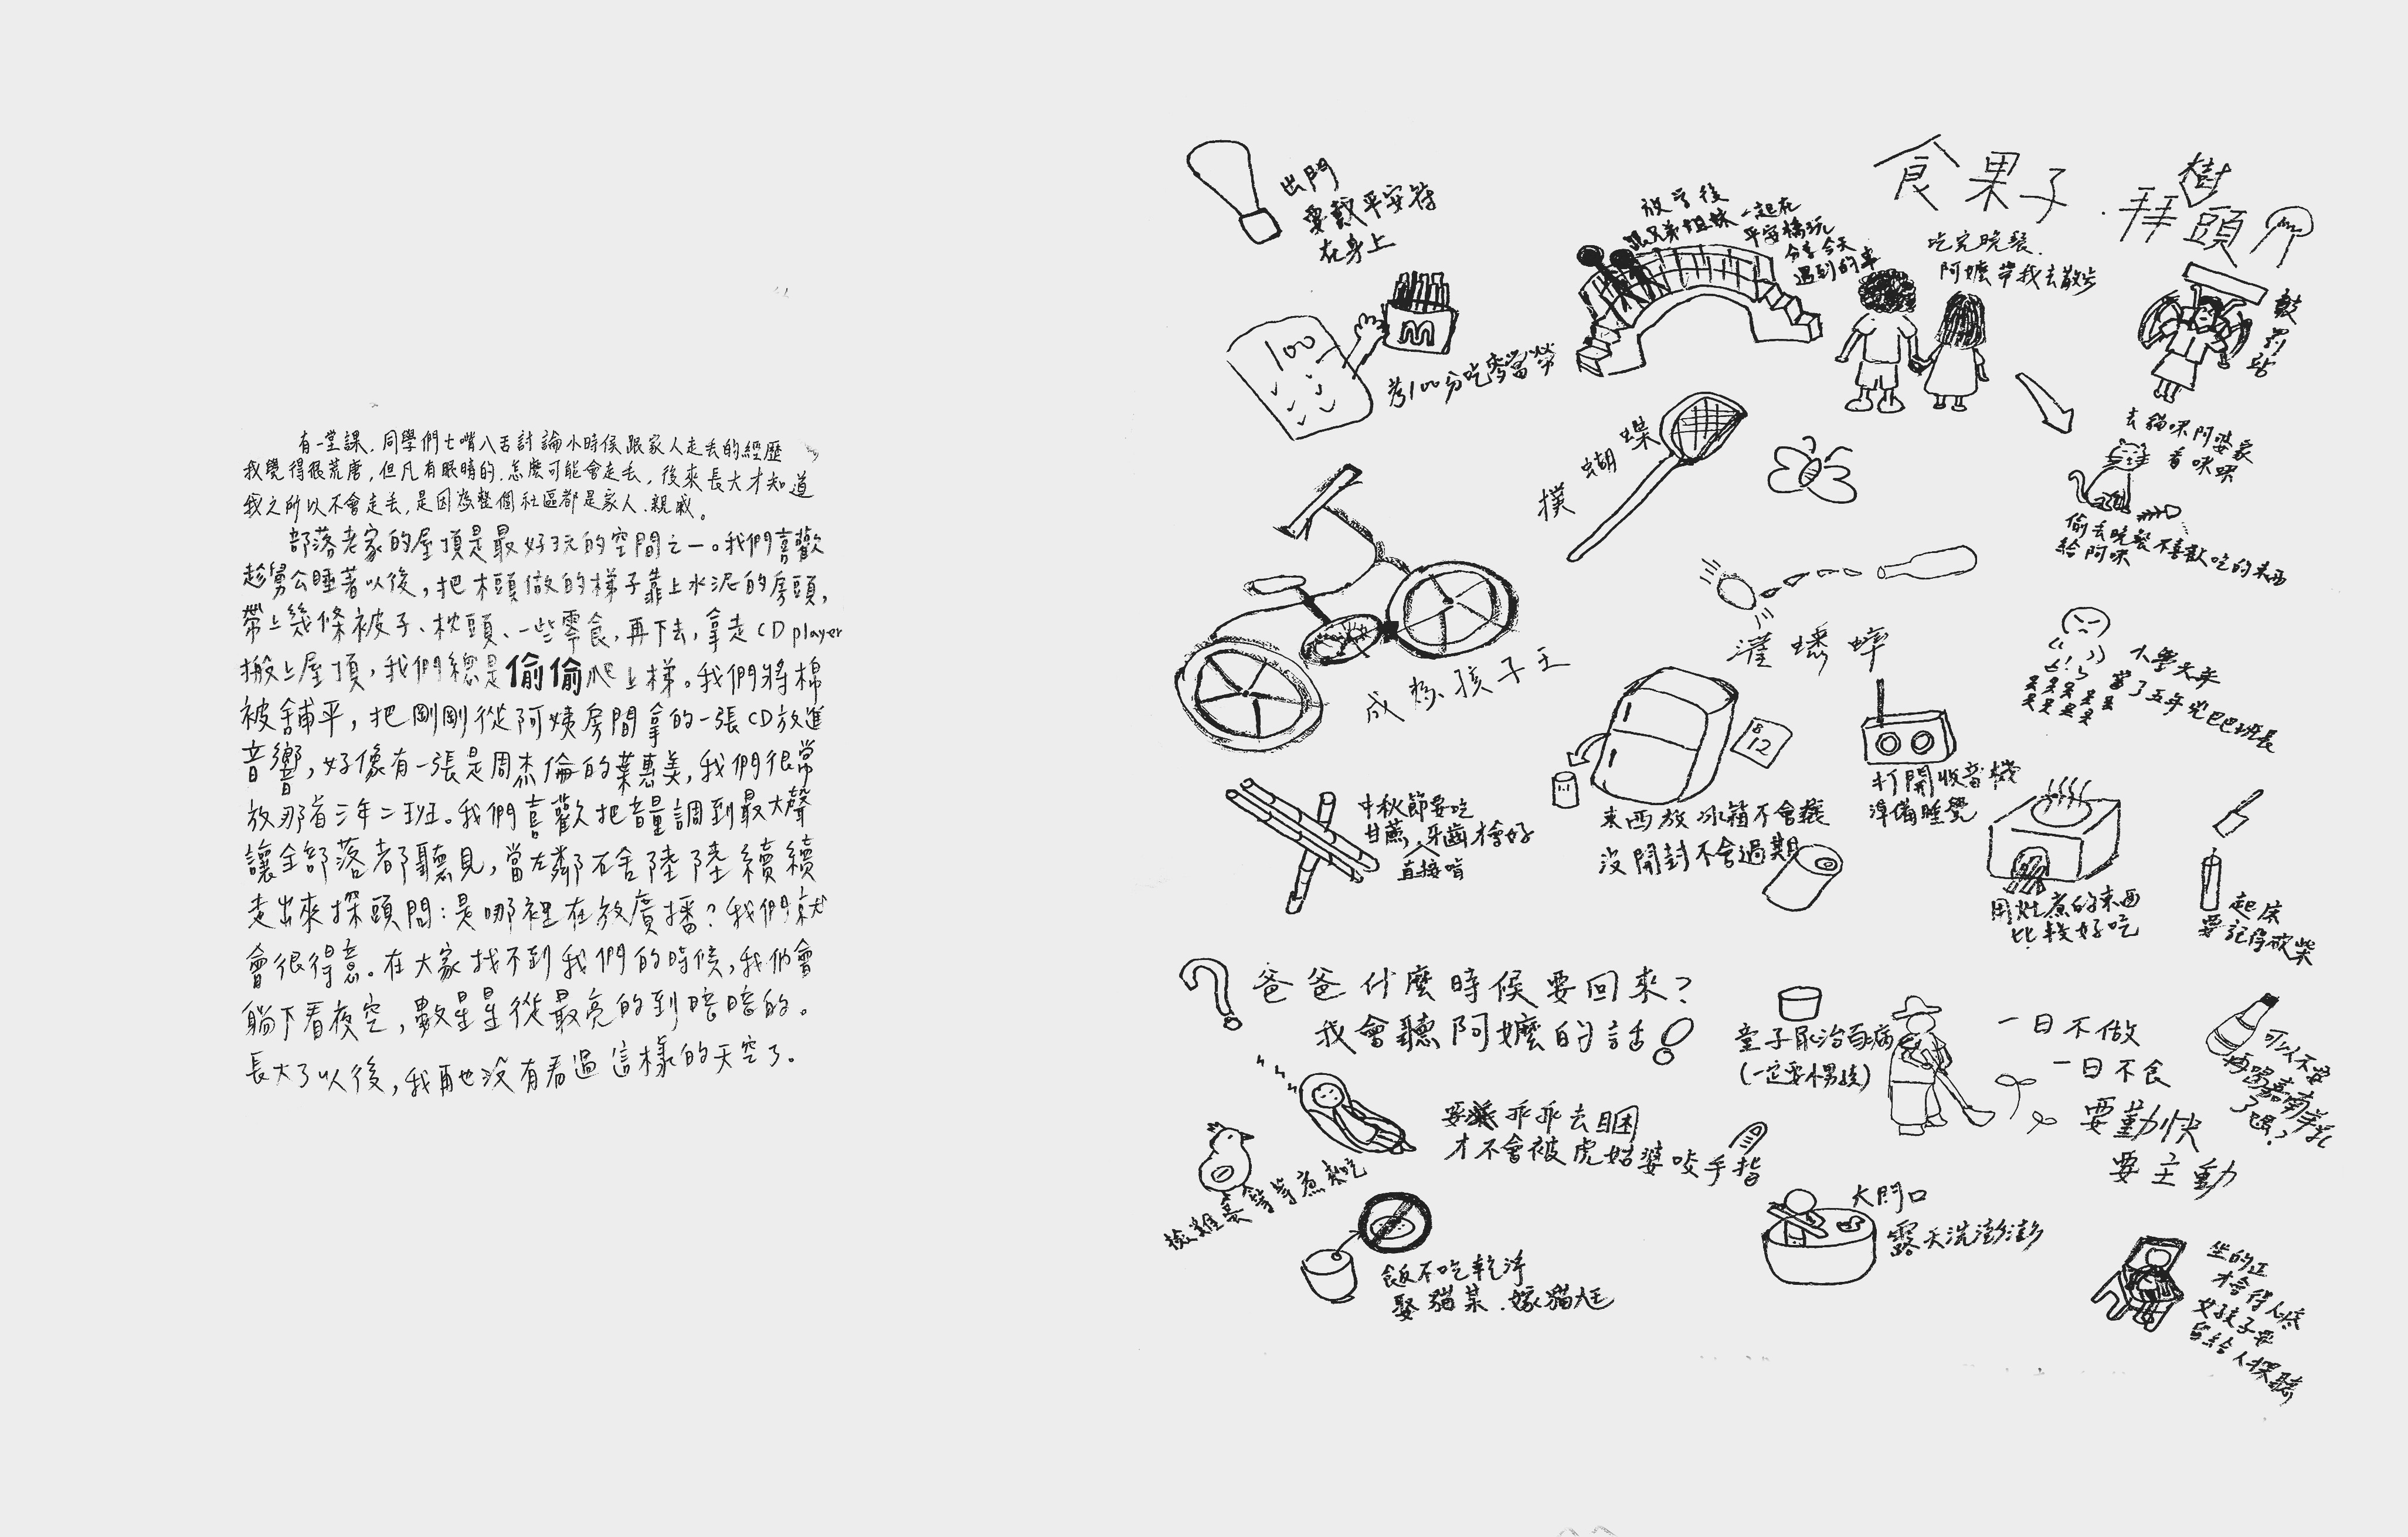 有一堂課.同學們七嘴八舌討論小時候跟家人走丟的經歷
我覺得很荒唐,但凡有眼睛的.怎麼可能會走丟,後來長大才知道
我之所以不會走丟,是因為整個社區都是家人.親戚。
部落老家的屋頂是最好玩的空間之一。我們喜歡
趁舅公睡著以後,把木頭做的梯子靠上水泥的房頭,
帶上幾條被子、枕頭、一些零食,再下去,拿走CD player
搬上屋頂,我們總是偷偷爬上梯。我們將棉
被舖平,把剛剛從阿姨房間拿的一張CD放進
音響,好像有一張是周杰倫的葉惠美,我們很常
放那首三年二班。我們喜歡把音量調到最大聲
讓全部落都聽見,當左鄰右舍陸陸續續
走出來探頭問:是哪裡在放廣播?我們就
會很得意。在大家找不到我們的時候,我們會
躺下看夜空,數星星從最亮的到暗暗的。
長大了以後,我再也沒有看過這樣的天空了。
食果子.拜樹頭
出門
要戴平安符
在身上
放學後
跟兄弟姐妹一起在
平安橋玩
分享今天
遇到的事
吃完晚餐.
阿嬤帶我去散步
鼓
站
100
考100分吃麥當勞
去貓咪阿婆家
看咪咪
偷丟晚餐不喜歡吃的東西
給阿咪
撲蝴蝶
灌蟋蟀
成為孩子王
小學六年
當了五年兇巴巴班長
8
12
東西放冰箱不會壞
沒開封不會過期
打開收音機
準備睡覺
中秋節要吃
甘蔗,牙齒才會好
直接啃
用灶煮的東西
比較好吃
起床
要記得砍柴
爸爸什麼時候要回來?
我會聽阿嬤的話!
童子尿治百病
(一定要小男孩)
一日不做
一日不食
要勤快
要主動
可以不要
再喝嘉南羊乳
了嗎?
乖乖去睏
才不會被虎姑婆咬手指
撿雞蛋等等煮來吃
飯不吃乾淨
娶貓某.嫁貓尪
大門口
露天洗澎澎
坐的正
才會得人疼
女孩子要